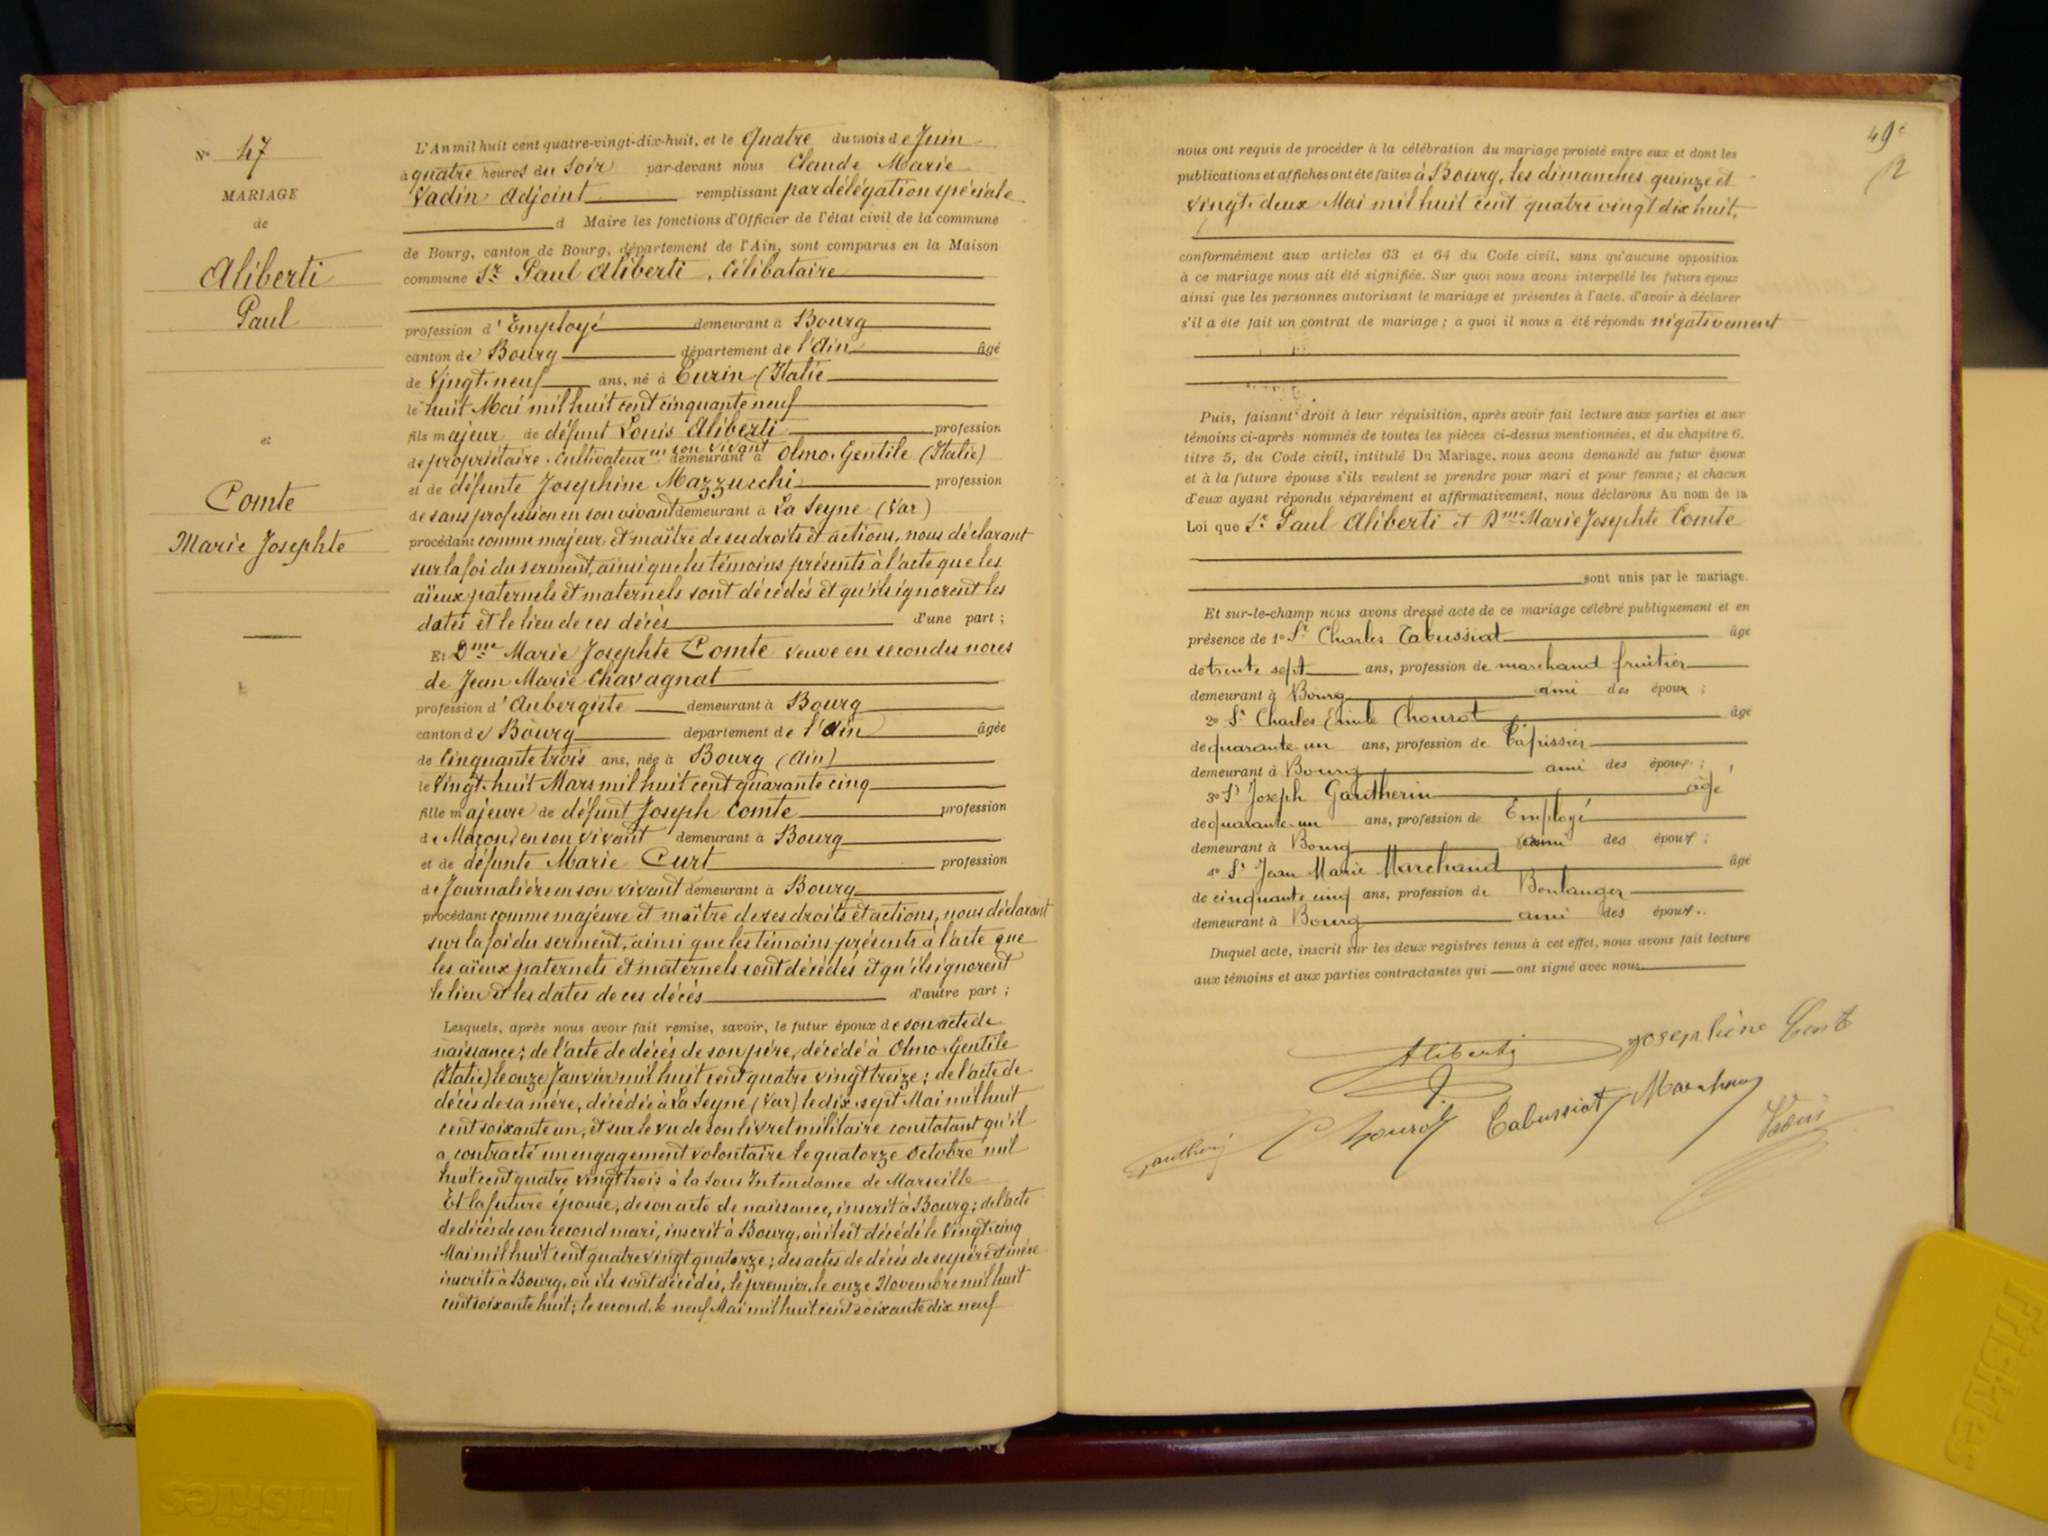 N° 47
MARIAGE
de
Aliberti
Paul
et
Comte
Marie Josephte
L'An mil huit cent quatre-vingt-dix-huit, et le Quatre du mois de Juin
à quatre heures du Soir par-devant nous Claude Marie
Vadin Adjoint remplissant par délégation spéciale
d Maire les fonctions d'Officier de l'état civil de la commune
de Bourg, canton de Bourg, département de l'Ain, sont comparus en la Maison
commune Sr Paul Aliberti, Célibataire
profession d'Employé demeurant à Bourg
canton de Bourg département de l'Ain âgé
de Vingt-neuf ans, né à Turin (Italie
le huit Mai mil huit cent cinquante neuf
fils majeur de défunt Louis Aliberti profession
de propriétaire-Cultivateur en son vivant demeurant à Olmo-Gentile (Italie)
et de défunte Joséphine Mazzucchi profession
de sans profession en son vivant demeurant à La Seyne (Var)
procédant comme majeur et maître de ses droits et actions, nous déclarant
sur la foi du serment, ainsi que les témoins présents à l'acte que les
aïeux paternels et maternels sont décédés et qu'ils ignorent les
dates et le lieu de ces décès d'une part ;
Et Dme Marie Josephte Comte veuve en secondes noces
de Jean Marie Chavagnat
profession d'Aubergiste demeurant à Bourg
canton de Bourg département de l'Ain âgée
de Cinquante trois ans, née à Bourg (Ain)
le Vingt-huit Mars mil huit cent quarante cinq
fille majeure de défunt Joseph Comte profession
de Maçon en son vivant demeurant à Bourg
et de défunte Marie Curt profession
de Journalière en son vivant demeurant à Bourg
procédant comme majeure et maître de ses droits et actions, nous déclarant
sur la foi du serment, ainsi que les témoins présents à l'acte que
les aïeux paternels et maternels sont décédés et qu'ils ignorent
le lieu et les dates de ces décès d'autre part ;
Lesquels, après nous avoir fait remise, savoir, le futur époux de son acte de
naissance ; de l'acte de décès de son père, décédé à Olmo-Gentile
(Italie) le onze Janvier mil huit cent quatre vingt treize ; de l'acte de
décès de sa mère, décédée à La Seyne (Var) le dix-sept Mai mil huit
cent soixante un, et sur le vu de son livret militaire constatant qu'il
a contracté un engagement volontaire le quatorze Octobre mil
huit cent quatre vingt trois à la Sous Intendance de Marseille
Et la future épouse, de son acte de naissance, inscrit à Bourg ; de l'acte
de décès de son second mari, inscrit à Bourg, où il est décédé le Vingt-cinq
Mai mil huit cent quatre vingt quatorze ; des actes de décès de ses père et mère
inscrits à Bourg, où ils sont décédés, le premier, le onze Novembre mil huit
cent soixante huit ; le second, le neuf Mai mil huit cent soixante dix neuf
49e
nous ont requis de procéder à la célébration du mariage projeté entre eux et dont les
publications et affiches ont été faites à Bourg, les dimanches quinze et
vingt-deux Mai mil huit cent quatre vingt dix huit,
conformément aux articles 63 et 64 du Code civil, sans qu'aucune opposition
à ce mariage nous ait été signifiée. Sur quoi nous avons interpellé les futurs époux
ainsi que les personnes autorisant le mariage et présentes à l'acte, d'avoir à déclarer
s'il a été fait un contrat de mariage ; à quoi il nous a été répondu négativement
Puis, faisant droit à leur réquisition, après avoir fait lecture aux parties et aux
témoins ci-après nommés de toutes les pièces ci-dessus mentionnées, et du chapitre 6,
titre 5, du Code civil, intitulé Du Mariage, nous avons demandé au futur époux
et à la future épouse s'ils veulent se prendre pour mari et pour femme ; et chacun
d'eux ayant répondu séparément et affirmativement, nous déclarons Au nom de la
Loi que Sr Paul Aliberti et Dme Marie Josephte Comte
sont unis par le mariage.
Et sur-le-champ nous avons dressé acte de ce mariage célébré publiquement et en
présence de 1° Sr Charles Tabussiat âgé
de trente sept ans, profession de marchand fruitier
demeurant à Bourg ami des époux ;
2° Sr Charles Emile Chourot âgé
de quarante-un ans, profession de Tapissier
demeurant à Bourg ami des époux ;
3° Sr Joseph Gautherin âgé
de quarante-un ans, profession de Employé
demeurant à Bourg ami des époux ;
4° Sr Jean Marie Marchand âgé
de cinquante cinq ans, profession de Boulanger
demeurant à Bourg ami des époux.
Duquel acte, inscrit sur les deux registres tenus à cet effet, nous avons fait lecture
aux témoins et aux parties contractantes qui ont signé avec nous
Aliberti Josephine Cont
Gautherin Chourot Tabussiat Marchand Vadin
Friskies
Friskies